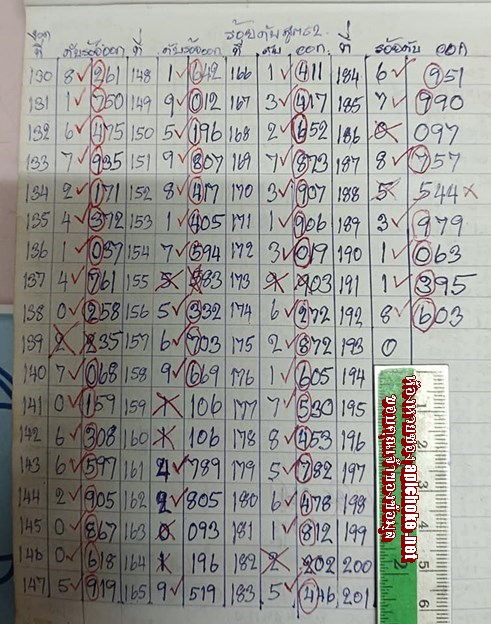 ร้อยดับสูตร2
งวดที่ ดับร้อย ออก ที่ ดับร้อย ออก ที่ ดับ ออก ที่ ร้อยดับ ออก
130 8✓ 261 148 1✓ 642 166 1✓ 411 184 6✓ 951
131 1✓ 750 149 9✓ 012 167 3✓ 417 185 7✓ 990
132 6✓ 475 150 5✓ 196 168 2✓ 652 186 0× 097
133 7✓ 935 151 9✓ 807 169 7✓ 873 187 8✓ 757
134 2✓ 171 152 8✓ 417 170 3✓ 907 188 5× 544×
135 4✓ 372 153 1✓ 405 171 1✓ 906 189 3✓ 979
136 1✓ 037 154 7✓ 594 172 3✓ 019 190 1✓ 063
137 4✓ 761 155 5× 583 173 9× 903 191 1✓ 395
138 0✓ 258 156 5✓ 332 174 6✓ 272 192 8✓ 603
139 2× 235 157 6✓ 703 175 2✓ 872 193 0
140 7✓ 068 158 9✓ 669 176 1✓ 605 194
141 0✓ 159 159 1× 106 177 7✓ 530 195
142 6✓ 308 160 1× 106 178 8✓ 453 196
143 6✓ 597 161 4✓ 789 179 5✓ 782 197
144 2✓ 905 162 2✓ 805 180 6✓ 478 198
145 0✓ 867 163 0× 093 181 1✓ 812 199
146 0✓ 618 164 1× 196 182 2× 202 200
147 5✓ 919 165 9✓ 519 183 5✓ 446 201
ห้องหวยของ apichoke.net
ขอบคุณเจ้าของข้อมูล
1 2 3 4 5 6
2